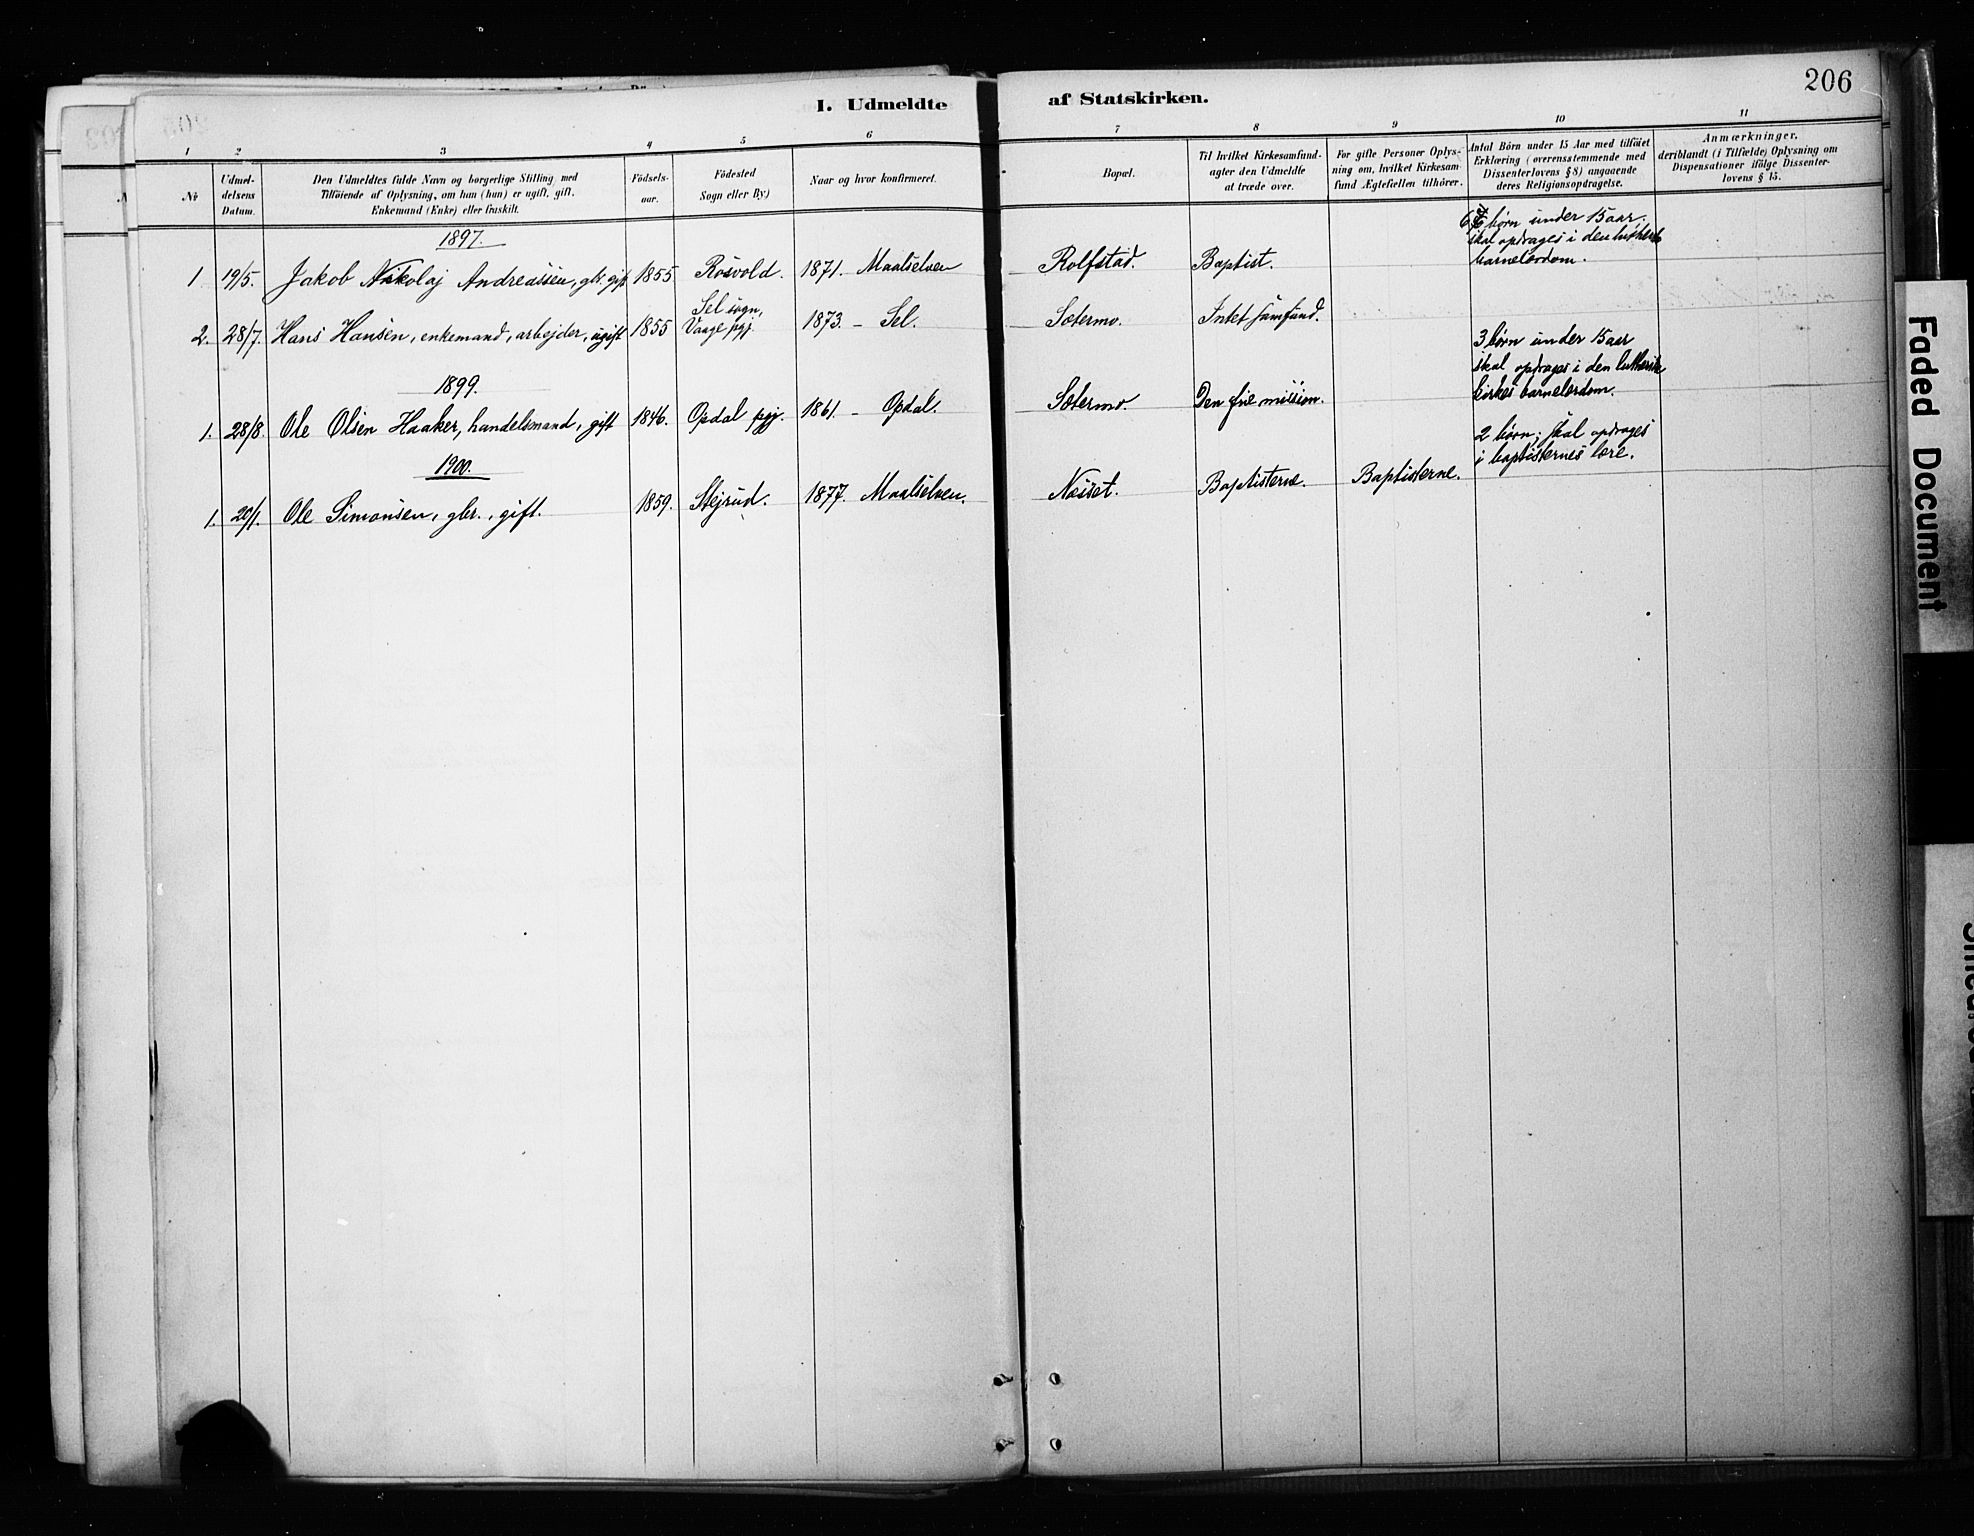 206
I. Udmeldte af Statskirken.
1 2 3 4 5 6 7 8 9 10 11
No
Udmel-
delsens
Datum.
Den Udmeldtes fulde Navn og borgerlige Stilling, med
Tilføiende af Oplysning, om han (hun) er ugift, gift,
Enkemand (Enke) eller fraskilt.
Födsels-
aar.
Födested
Sogn eller By)
Naar og hvor konfirmeret.
Bopæl.
Til hvilket Kirkesamfund-
agter den Udmeldte
at træde over.
For gifte Personer Oplys-
ning om, hvilket Kirkesam-
fund Ægtefællen tilhörer.
Antal Börn under 15 Aar med tilföiet
Erklæring (overensstemmende med
Dissenterlovens § 8) angaaende
deres Religionsopdragelse.
Anmærkninger,
deriblandt (i Tilfælde) Oplysning om
Dispensationer ifölge Dissenter-
lovens § 15.
1897.
1 19/5. Jakob Nikolaj Andreassen, gbr. gift 1855 Rosvold. 1871. Maalselven Rolfstad. Baptist.
6 børn under 15 aar.
skal opdrages i den lutherske
barnelærdom.
2. 28/7. Hans Hansen, enkemand, arbejder, ugift 1855
Sel sogn,
Vaage pgj.
1873. – Sel. Sætermo. Intet samfund.
1899.
1. 28/8. Ole Olsen Haaker, handelsmand, gift 1846. Opdal pgj. 1861. – Opdal. Sætermo. Den frie mission.
3 børn under 15 aar
skal opdrages i den lutherske
kirkes barnelærdom.
1900.
1. 20/1. Ole Simonsen, gbr., gift. 1859. Stejrud. 1877. Maalselven. Næset. Baptisterne. Baptisterne.
2 børn; skal opdrages
i baptisternes lære.
Faded Document